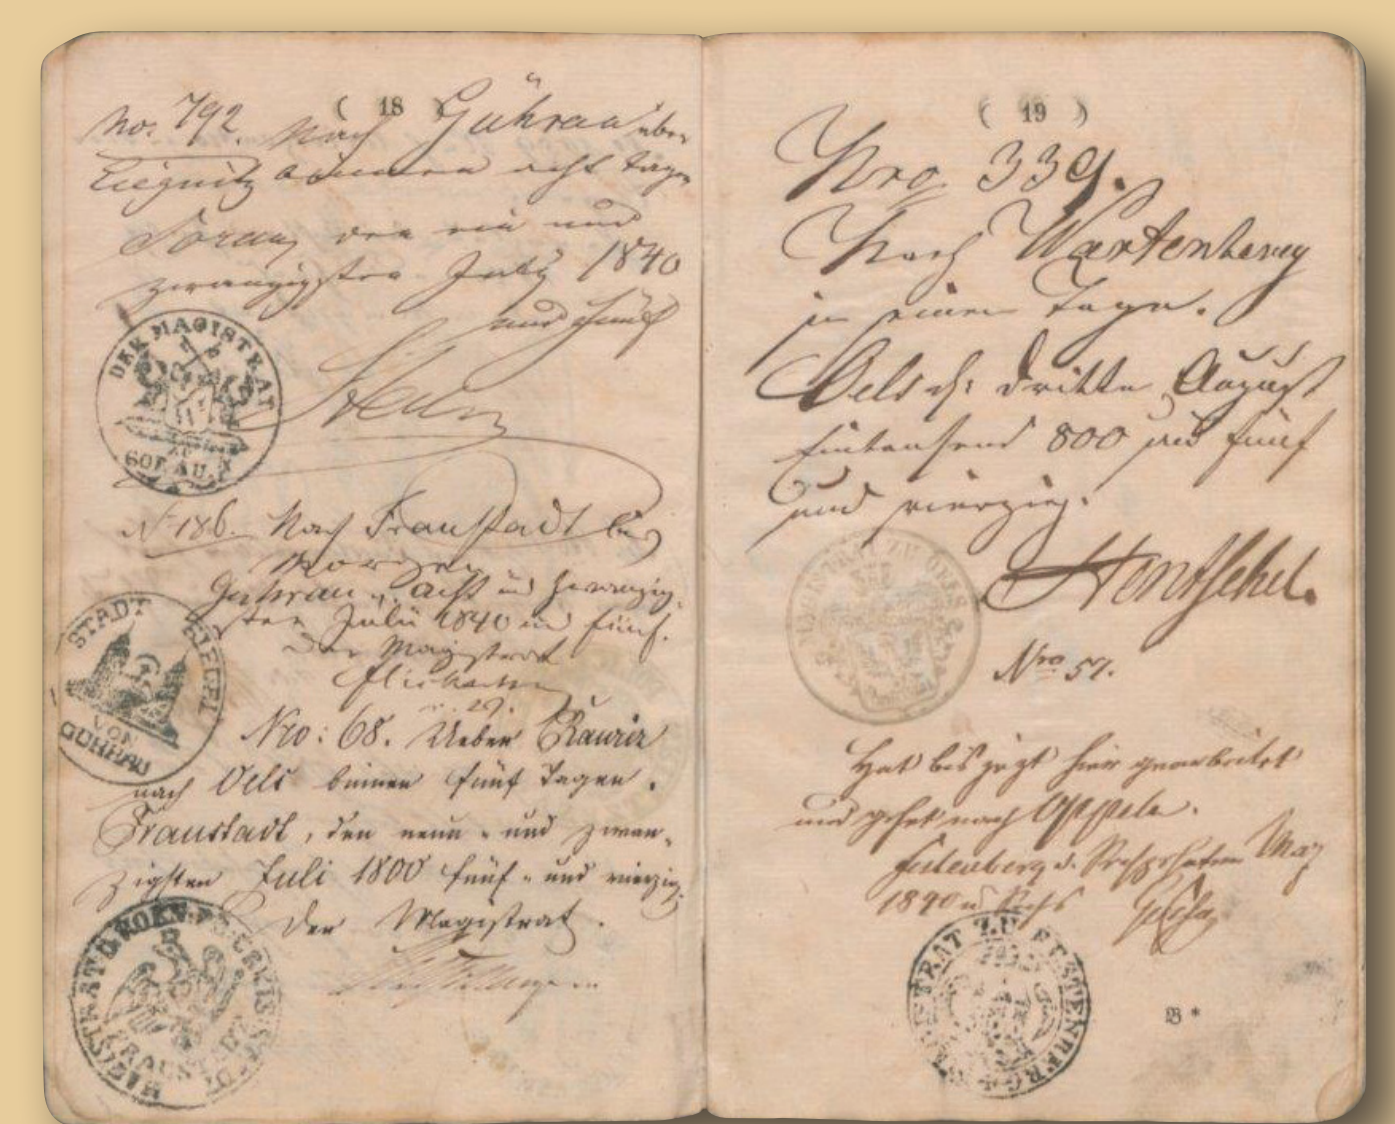 ( 18 )
No. 792. Nach Guhrau über
Liegnitz binnen acht Tagen
Sorau, den ein und
zwanzigsten July 1840
und fünf
DER MAGISTRAT
ZU
SORAU
N 186. Nach Fraustadt bis
Morgen
Guhrau, acht und zwanzig-
sten Julii 1840 und fünf.
Der Magistrat
STADT SIEGEL
VON
GUHRAU
Nro: 68. Ueber Rawicz
nach Oels binnen fünf Tagen.
Fraustadt, den neun- und zwan-
zigsten Juli 1800 fünf- und vierzig.
Der Magistrat.
MAGISTRAT D. KOEN. PR. KREISSTADT
FRAUSTADT
( 19 )
Nro. 339.
Nach Wartenberg
in einem Tage.
Oels d. dritte August
Eintausend 800 und fünf
und vierzig.
Hentschel.
MAGISTRAT ZU OELS
Nro 57.
Hat bis jetzt hier gearbeitet
und gehet nach Oppeln.
d. May
1840 u Sechs
MAGISTRAT ZU FESTENBERG
B *